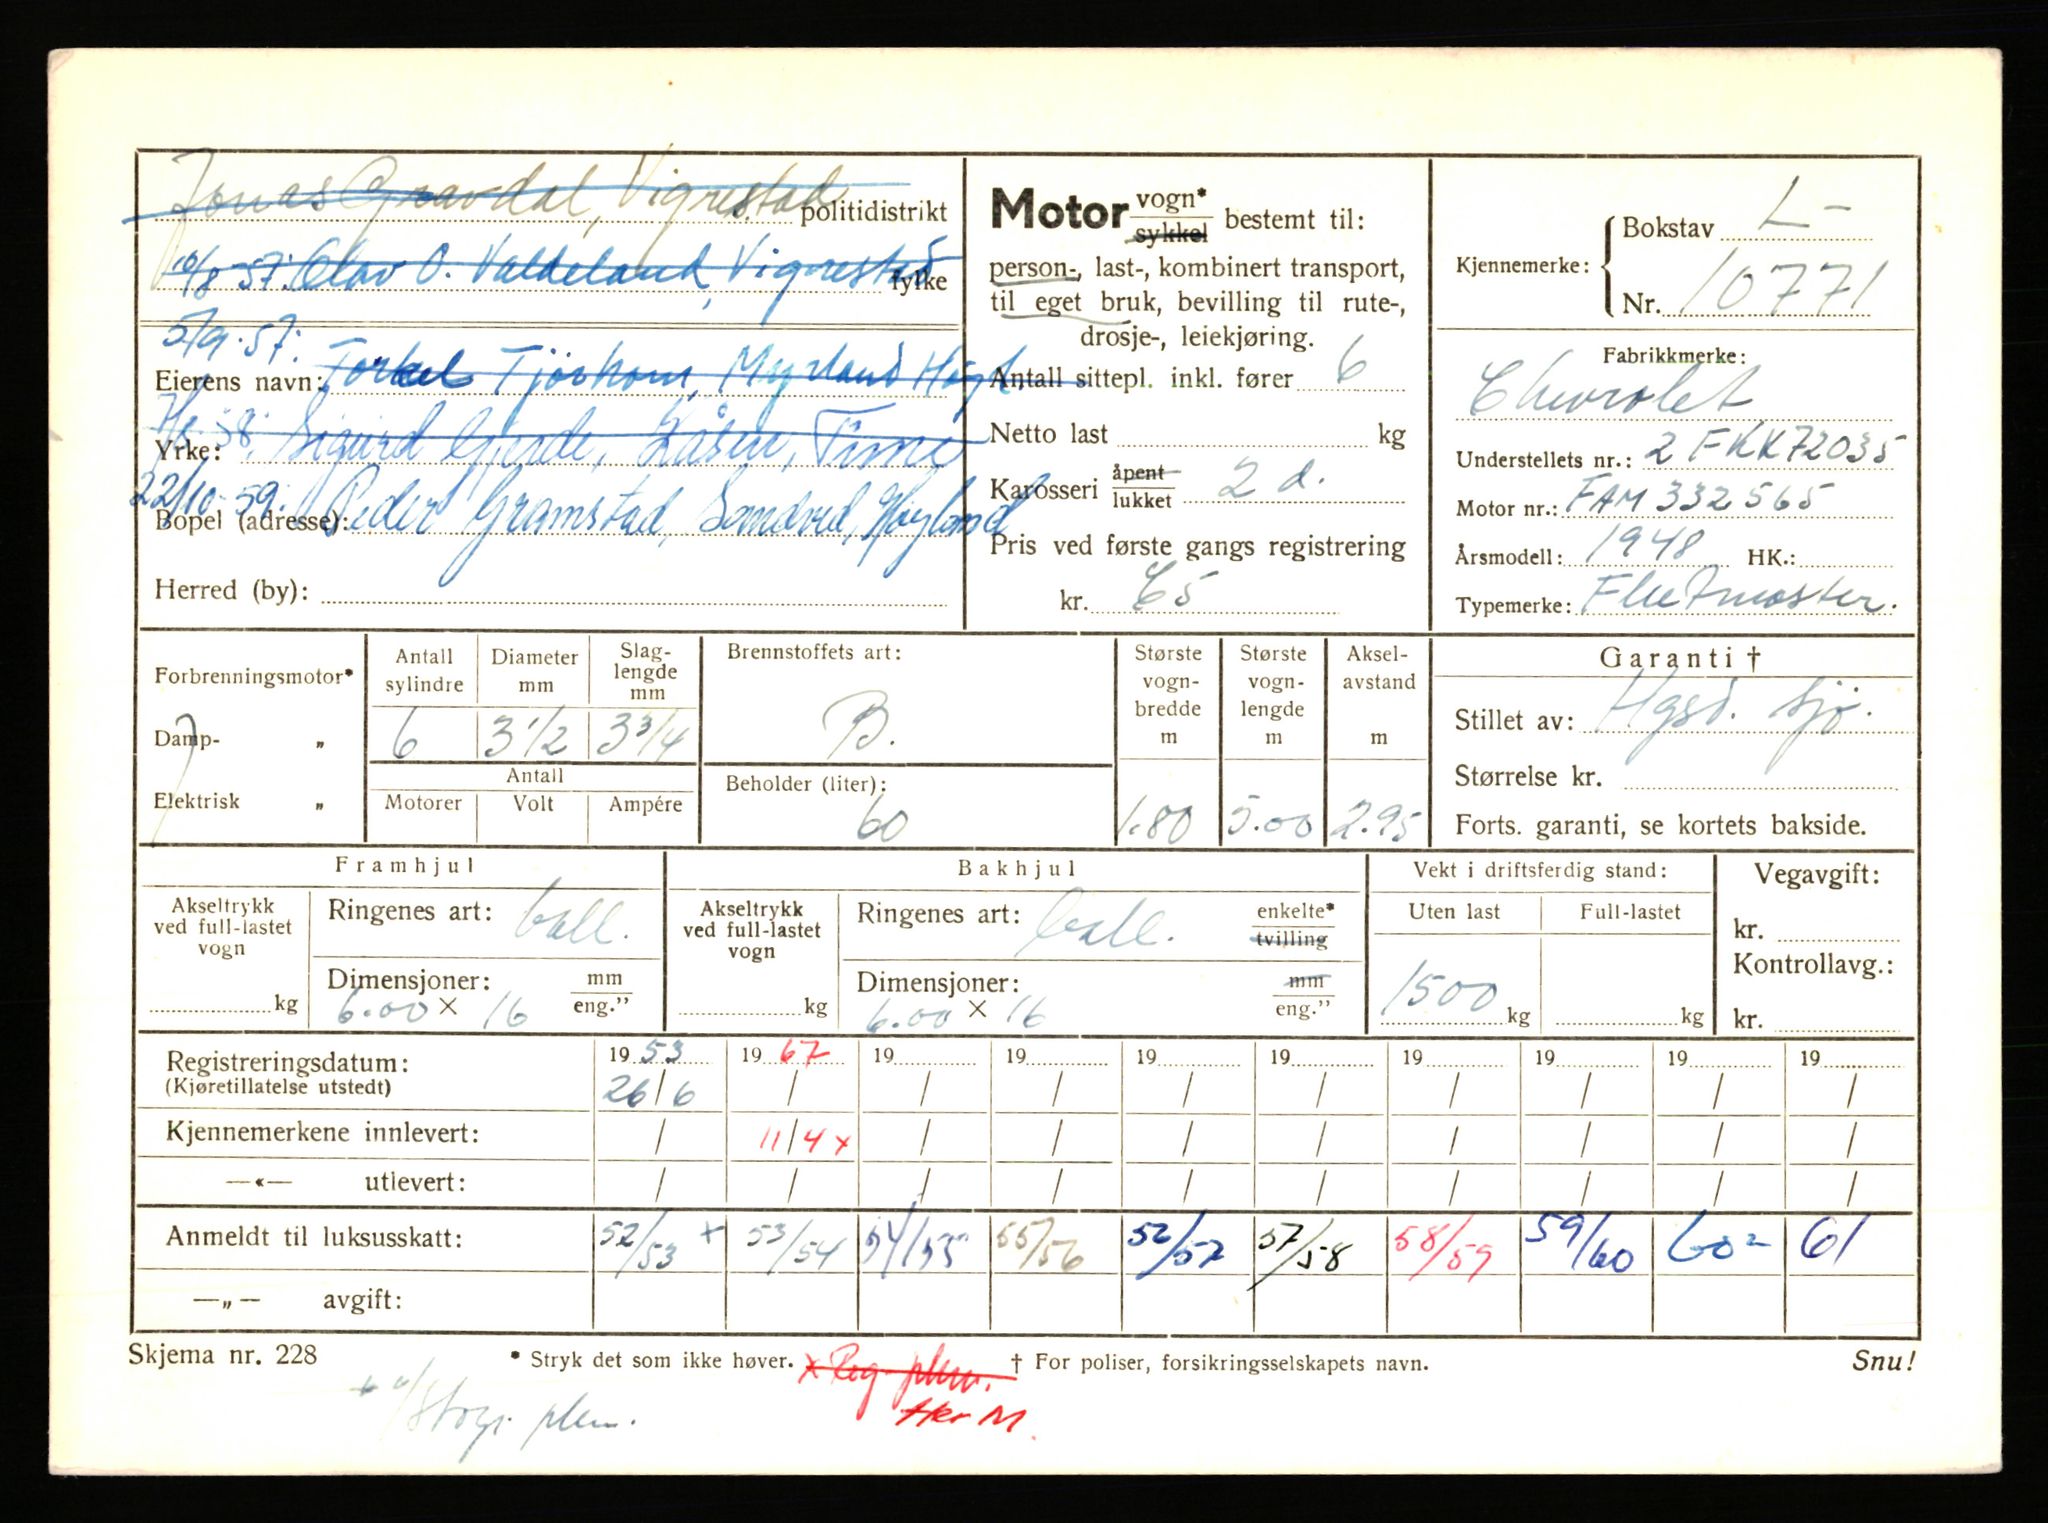 Jonas Gravdal, Vigrestad politidistrikt
10/8 57. Olav O. Valdeland, Vigrestad fylke
5/9.57.
Eierens navn: Torkel Tjörhom, Myrland
58. Sigurd Gjerde, Låsen, Time
Yrke:
22/10 59. Peder Gramstad, Sandved, Høyland
Bopel (adresse):
Herred (by):
Motor vogn* sykkel bestemt til:
person-, last-, kombinert transport,
til eget bruk, bevilling til rute-,
drosje-, leiekjøring.
Antall sittepl. inkl. fører 6
Netto last kg
Karosseri åpent lukket 2 d.
Pris ved første gangs registrering
kr. C5
Kjennemerke: Bokstav L-
Nr. 10771
Fabrikkmerke:
Chevrolet
Understellets nr.: 2 FKK72035
Motor nr.: FAM 332565
Årsmodell: 1948 HK.:
Typemerke: Fleetmaster.
Forbrenningsmotor*
Damp- „
Elektrisk „
Antall sylindre Diameter mm Slag-lengde mm
6 3 1/2 3 3/4
Antall
Motorer Volt Ampére
Brennstoffets art:
B.
Beholder (liter):
60
Største vogn-bredde m
1.80
Største vogn-lengde m
5.00
Aksel-avstand m
2.95
Garanti †
Stillet av: Hgsd. Sjø.
Størrelse kr.
Forts. garanti, se kortets bakside.
Framhjul
Akseltrykk ved full-lastet vogn
kg
Ringenes art: ball.
Dimensjoner: mm
6.00 × 16 eng.”
Bakhjul
Akseltrykk ved full-lastet vogn
kg
Ringenes art: ball. enkelte* tvilling
Dimensjoner: mm
6.00 × 16 eng.”
Vekt i driftsferdig stand:
Uten last Full-lastet
1500 kg kg
Vegavgift:
kr.
Kontrollavg.:
kr.
Registreringsdatum: 19 53 19 67 19 19 19 19 19 19 19 19
(Kjøretillatelse utstedt) 26/6 / / / / / / / / /
Kjennemerkene innlevert: / 11/4 x / / / / / / / /
—«— utlevert: / / / / / / / / / /
Anmeldt til luksusskatt: 52/53 + 53/54 54/55 55/56 52/57 57/58 58/59 59/60 60- 61
—„— avgift:
Skjema nr. 228 * Stryk det som ikke høver. x Reg. plem. † For poliser, forsikringsselskapets navn. Snu!
M.
plem.